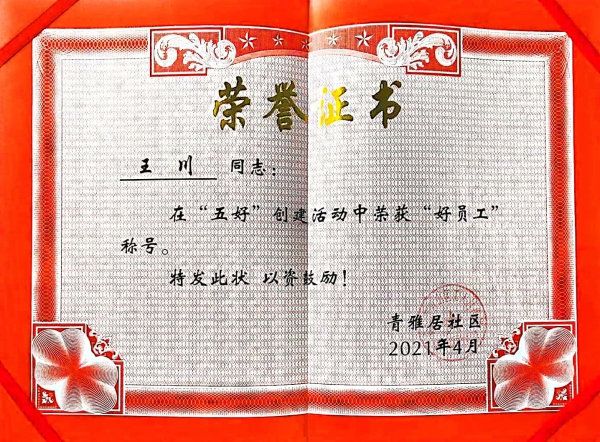 荣誉证书
王川 同志：
在“五好”创建活动中荣获“好员工”
称号。
特发此状 以资鼓励！
青雅居社区
2021年4月